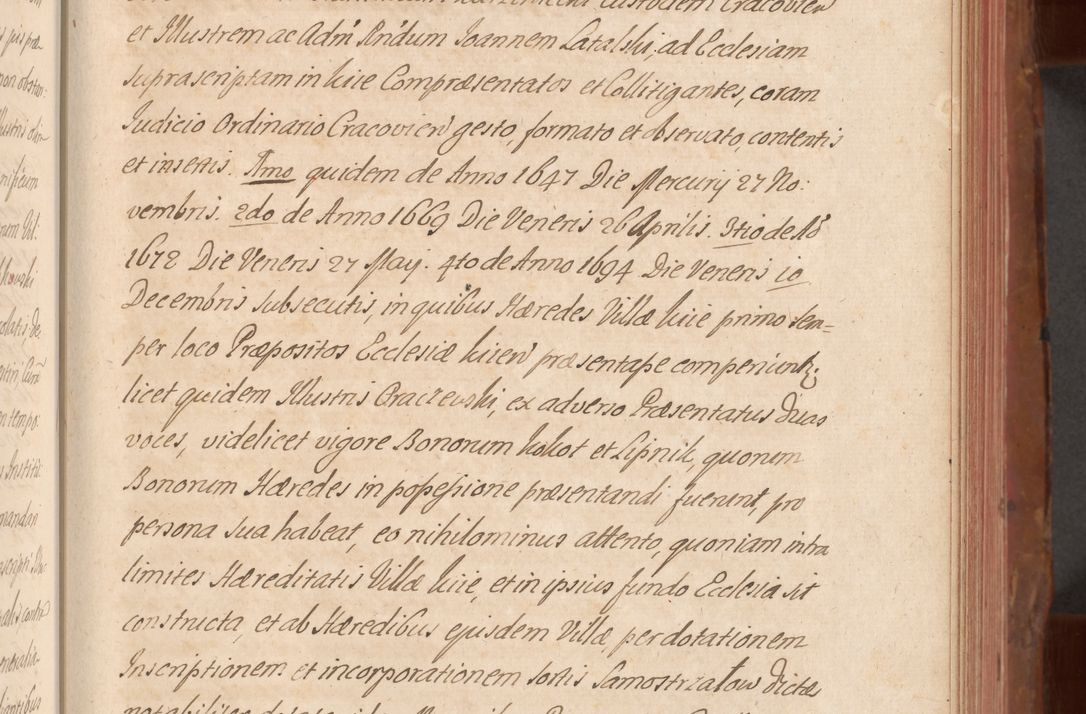 et Illustrem ac Adm̃ Rṅdum Joannem Latalski, ad Ecclesiam
suprascriptam in Kiie Compræsentatos et Collitigantes, coram
Iudicio Ordinario Cracovien̄ gesto, formato et observato, contentis
et insertis. Imo quidem de Anno 1647 Die Mercurij 27 No:
vembris. 2do de Anno 1669 Die Veneris 26 Aprilis. 3tio de Aō
1672 Die Veneris 27 May. 4to de Anno 1694 Die Veneris 10
Decembris subsecutis, in quibus Hæredes Villæ Kiie primo sem=
per loco Præpositos Ecclesiæ Kiien̄ præsentasse comperiuntꝶ.
licet quidem Illustris Oraczewski, ex adverso Præsentatus duas
voces, videlicet vigore Bonorum Kokot et Lipnik, quorum
Bonorum Hæredes in possessione præsentandi fuerunt, pro
persona sua habeat, eo nihilominus attento, quoniam intra
limites Hæreditatis Villæ Kiie, et in ipsius fundo Ecclesia sit
constructa, et ab Hæredibus ejusdem Villæ per dotationem
Inscriptionem et incorporationem sortis Samostrzałow dictæ